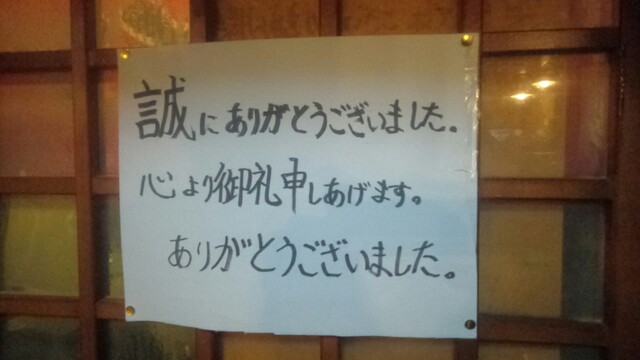 誠にありがとうございました。
心より御礼申しあげます。
ありがとうございました。